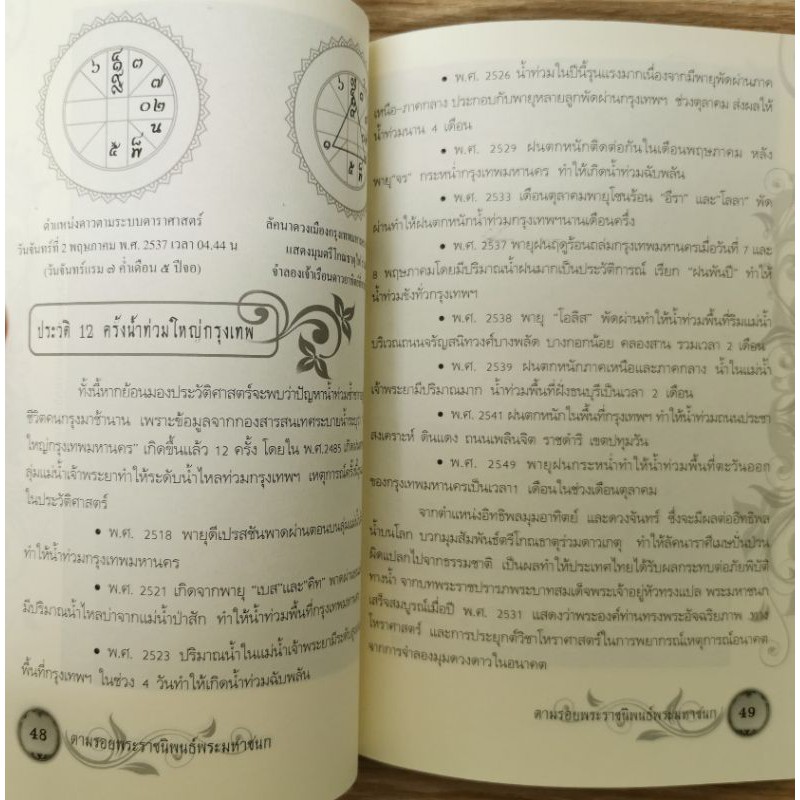 ตำแหน่งดาวตามระบบดาราศาสตร์
วันจันทร์ที่ 2 พฤษภาคม พ.ศ. 2537 เวลา 04.44 น
(วันจันทร์แรม ๗ ค่ำเดือน ๕ ปีจอ)
ลัคนาดวงเมืองกรุงเทพมหา
แสดงมุมตรีโกณธาตุไฟ
จำลองเจ้าเรือนดาวอาทิตย์
ประวัติ 12 ครั้งน้ำท่วมใหญ่กรุงเทพ
ทั้งนี้หากย้อนมองประวัติศาสตร์จะพบว่าปัญหาน้ำท่วม
ชีวิตคนกรุงมาช้านาน เพราะข้อมูลจากกองสารสนเทศระบายน้ำระบุ
ใหญ่กรุงเทพมหานคร" เกิดขึ้นแล้ว 12 ครั้ง โดยใน พ.ศ.2485 เกิด
ลุ่มแม่น้ำเจ้าพระยาทำให้ระดับน้ำไหลท่วมกรุงเทพฯ เหตุการณ์ครั้งนั้น
ในประวัติศาสตร์
• พ.ศ. 2518 พายุดีเปรสชันพาดผ่านตอนบนลุ่ม
ทำให้น้ำท่วมกรุงเทพมหานคร
• พ.ศ. 2521 เกิดจากพายุ "เบส"และ"คิท" พาดผ่าน
มีปริมาณน้ำไหลบ่าจากแม่น้ำป่าสัก ทำให้น้ำท่วมพื้นที่กรุงเทพมหา
• พ.ศ. 2523 ปริมาณน้ำในแม่น้ำเจ้าพระยามีระดับสูง
พื้นที่กรุงเทพฯ ในช่วง 4 วันทำให้เกิดน้ำท่วมฉับพลัน
48 ตามรอยพระราชนิพนธ์พระมหาชนก
• พ.ศ. 2526 น้ำท่วมในปีนี้รุนแรงมากเนื่องจากมีพายุพัดผ่านภาค
เหนือ-ภาคกลาง ประกอบกับพายุหลายลูกพัดผ่านกรุงเทพฯ ช่วงตุลาคม ส่งผลให้
น้ำท่วมนาน 4 เดือน
• พ.ศ. 2529 ฝนตกหนักติดต่อกันในเดือนพฤษภาคม หลัง
พายุ"จร" กระหน่ำกรุงเทพมหานคร ทำให้เกิดน้ำท่วมฉับพลัน
• พ.ศ. 2533 เดือนตุลาคมพายุโซนร้อน "อีรา" และ"โลลา" พัด
ผ่านทำให้ฝนตกหนักน้ำท่วมกรุงเทพฯนานเดือนครึ่ง
• พ.ศ. 2537 พายุฝนฤดูร้อนถล่มกรุงเทพมหานครเมื่อวันที่ 7 และ
8 พฤษภาคมโดยมีปริมาณน้ำฝนมากเป็นประวัติการณ์ เรียก "ฝนพันปี" ทำให้
น้ำท่วมขังทั่วกรุงเทพฯ
• พ.ศ. 2538 พายุ "โอลิส" พัดผ่านทำให้น้ำท่วมพื้นที่ริมแม่น้ำ
บริเวณถนนจรัญสนิทวงศ์บางพลัด บางกอกน้อย คลองสาน รวมเวลา 2 เดือน
• พ.ศ. 2539 ฝนตกหนักภาคเหนือและภาคกลาง น้ำในแม่น้ำ
เจ้าพระยามีปริมาณมาก น้ำท่วมพื้นที่ฝั่งธนบุรีเป็นเวลา 2 เดือน
• พ.ศ. 2541 ฝนตกหนักในพื้นที่กรุงเทพฯ ทำให้น้ำท่วมถนนประชา
สงเคราะห์ ดินแดง ถนนเพลินจิต ราชดำริ เขตปทุมวัน
• พ.ศ. 2549 พายุฝนกระหน่ำทำให้น้ำท่วมพื้นที่ตะวันออก
ของกรุงเทพมหานครเป็นเวลา1 เดือนในช่วงเดือนตุลาคม
จากตำแหน่งอิทธิพลมุมอาทิตย์ และดวงจันทร์ ซึ่งจะมีผลต่ออิทธิพล
น้ำบนโลก บวกมุมสัมพันธ์ตรีโกณธาตุร่วมดาวเกตุ ทำให้ลัคนาราศีเมษปั่นป่วน
ผิดแปลกไปจากธรรมชาติ เป็นผลทำให้ประเทศไทยได้รับผลกระทบต่อภัยพิบัติ
ทางน้ำ จากบทพระราชปรารภพระบาทสมเด็จพระเจ้าอยู่หัวทรงแปล พระมหาชนก
เสร็จสมบูรณ์เมื่อปี พ.ศ. 2531 แสดงว่าพระองค์ท่านทรงพระอัจฉริยภาพ ทาง
โหราศาสตร์ และการประยุกต์วิชาโหราศาสตร์ในการพยากรณ์เหตุการณ์อนาคต
จากการจำลองมุมดวงดาวในอนาคต
ตามรอยพระราชนิพนธ์พระมหาชนก 49